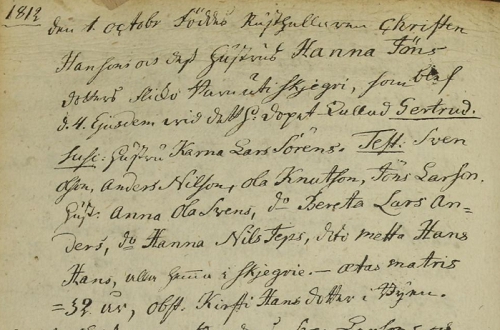 1812
den 1. octobr föddes Rusthållaren Christen
Hansons ocs dess hustrus Hanna Jöns
dotters flicko barn uti skjegri, som blef
d. 4. Ejusdem wid dess H: dopet kallad Gertrud.
Susc: hustru Karna Lars Sörens. Test: Sven
Olson, Anders Nilson, Ola Knutson, Jöns Larson.
hust: Anna Ola Svens, do Beretta Lars An=
ders, do Hanna Nils Jeps, dito metta Hans
Hans, alla hemma i skjegrie. — ætas matris
= 32 år, obst. Kirsti Hans dotter i